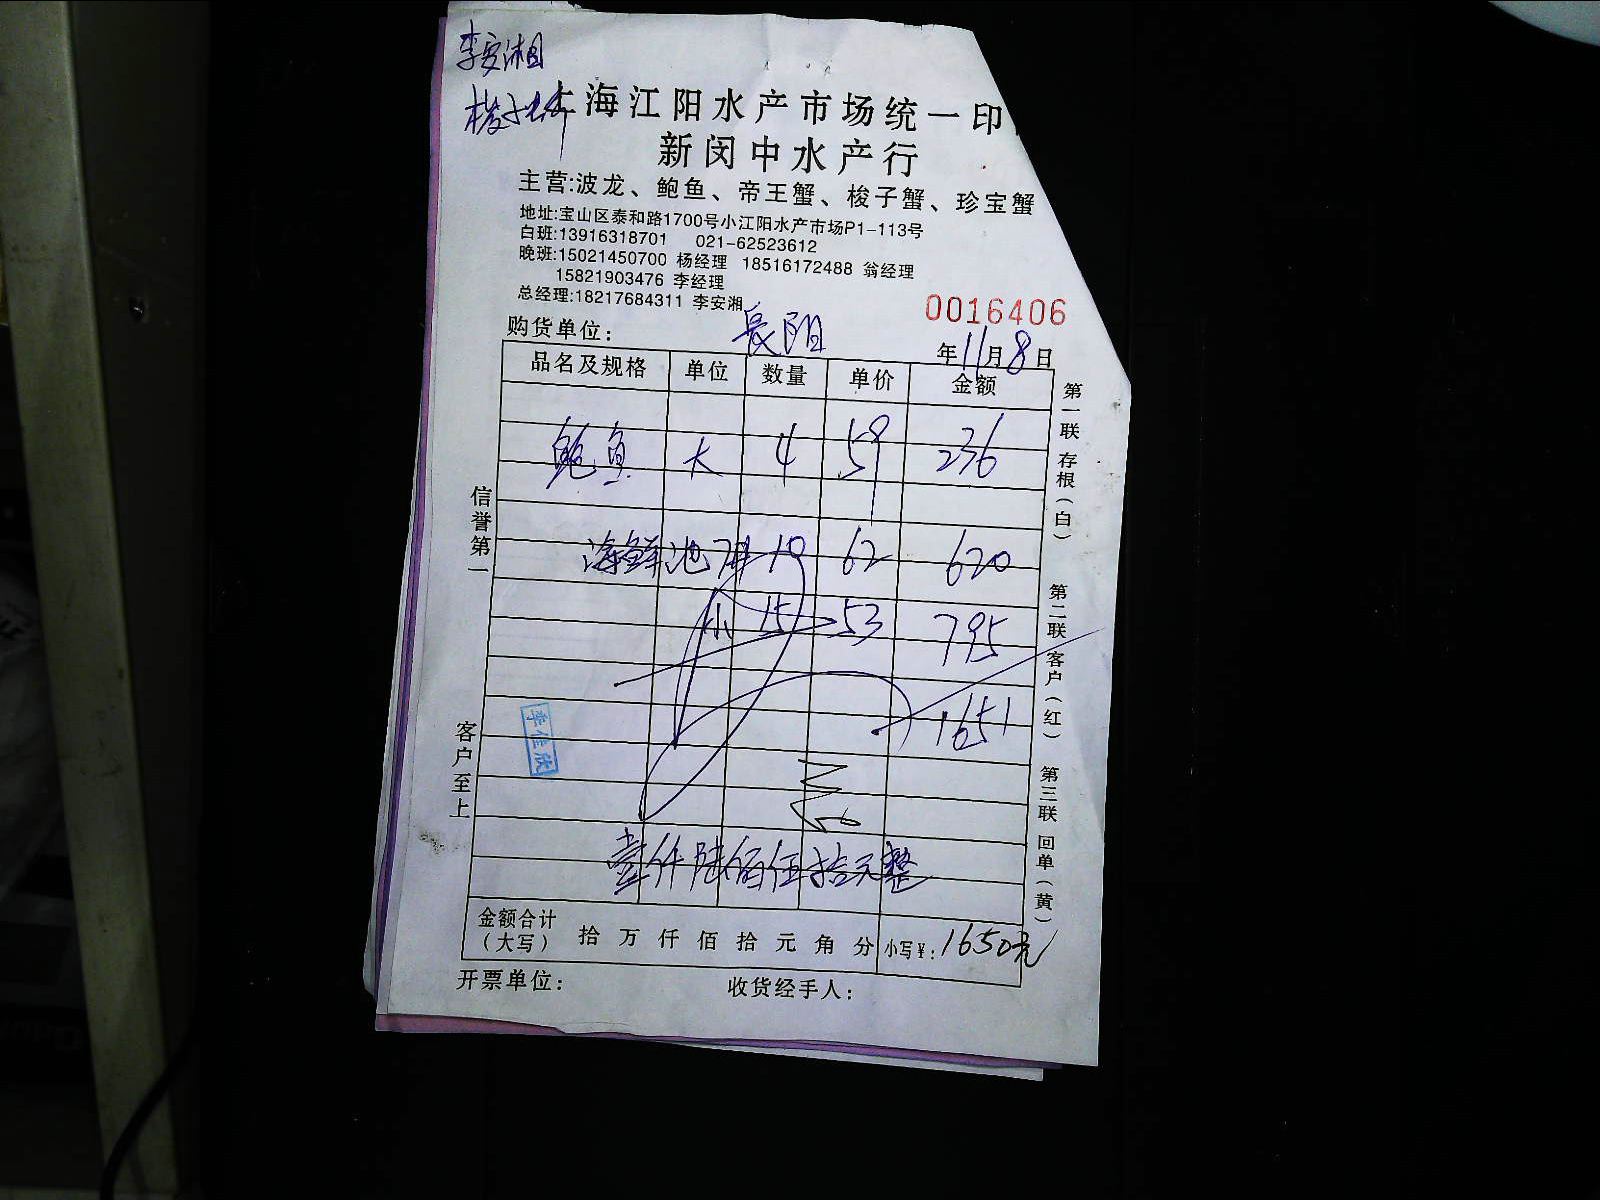 李安湘
梭子
上海江阳水产市场统一印
新闵中水产行
主营:波龙、鲍鱼、帝王蟹、梭子蟹、珍宝蟹
地址:宝山区泰和路1700号小江阳水产市场P1-113号
白班:13916318701 021-62523612
晚班:15021450700 杨经理 18516172488 翁经理
15821903476 李经理
总经理:18217684311 李安湘
0016406
购货单位: 长阳
年11月8日
品名及规格 单位 数量 单价 金额
鲍鱼 大 4 59 236
海鲜池 10 62 620
小 15 53 795
1651
李佳欣
壹仟陆佰伍拾元整
金额合计(大写) 拾 万 仟 佰 拾 元 角 分 小写¥: 1650元
开票单位: 收货经手人:
信誉第一
客户至上
第一联 存根(白)
第二联 客户(红)
第三联 回单(黄)